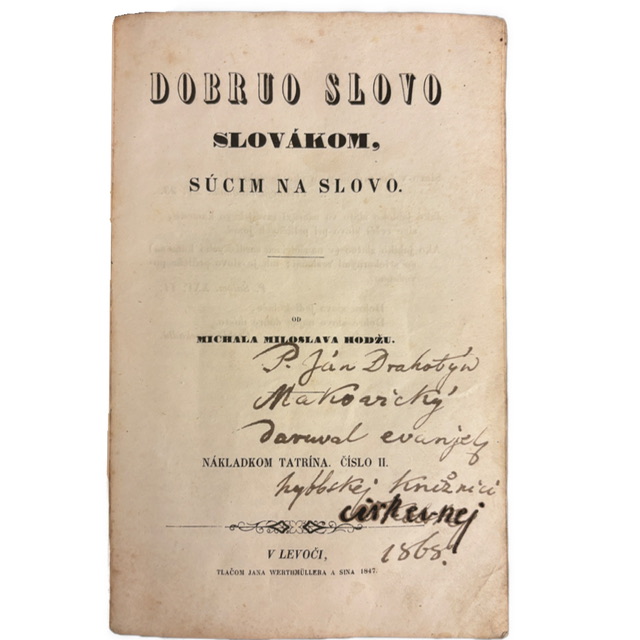 DOBRUO SLOVO
SLOVÁKOM,
SÚCIM NA SLOVO.
OD
MICHALA MILOSLAVA HODŽU.
P. Ján Drahotýn
Makovický
daroval evanjel
NÁKLADKOM TATRÍNA. ČÍSLO II.
hybbskej Knižnici
cirkevnej
1868.
V LEVOČI,
TLAČOM JANA WERTHMÜLLERA A SINA 1847.